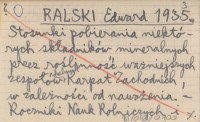 RALSKI Edward 1933
Stosunki pobierania niektó-
rych składników mineralnych
przez roślinność ważniejszych
zespołów Karpat Zachodnich
w zależności od nawożenia. -
Roczniki Nauk Rolniczych